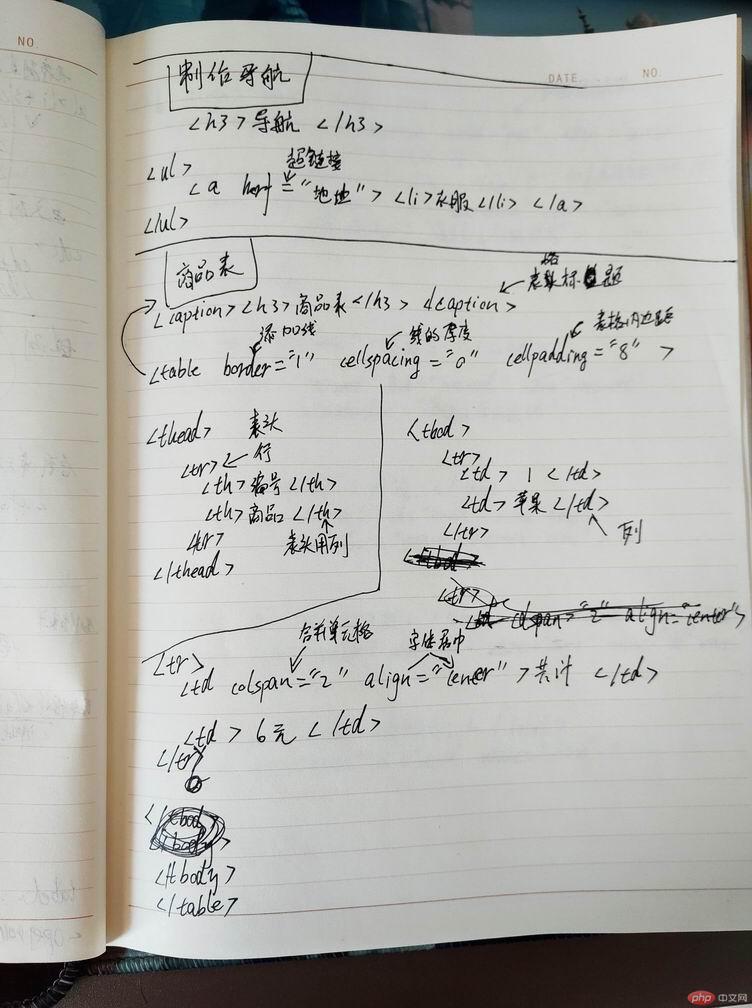 NO.
DATE. NO.
制作导航
<h3> 导航 </h3>
超链接
<ul>
<a href = "地址"> <li>衣服</li> </a>
</ul>
商品表
表格标题
<caption> <h3>商品表</h3> <caption>
添加线 线的厚度
<table border = "1" cellspacing = "0" cellpadding = "8" >
<thead> 表头
<tr> 行
<th> 编号 </th>
<th> 商品 </th>
</tr> 表头用列
</thead>
<tbod>
<tr>
<td> 1 </td>
<td> 苹果 </td>
</tr> 列
<tr>
合并单元格 字体居中
<tr>
<td colspan = "2" align = "center" > 共计 </td>
<td> 6元 </td>
</tr>
</tbody>
</table>
php 中文网